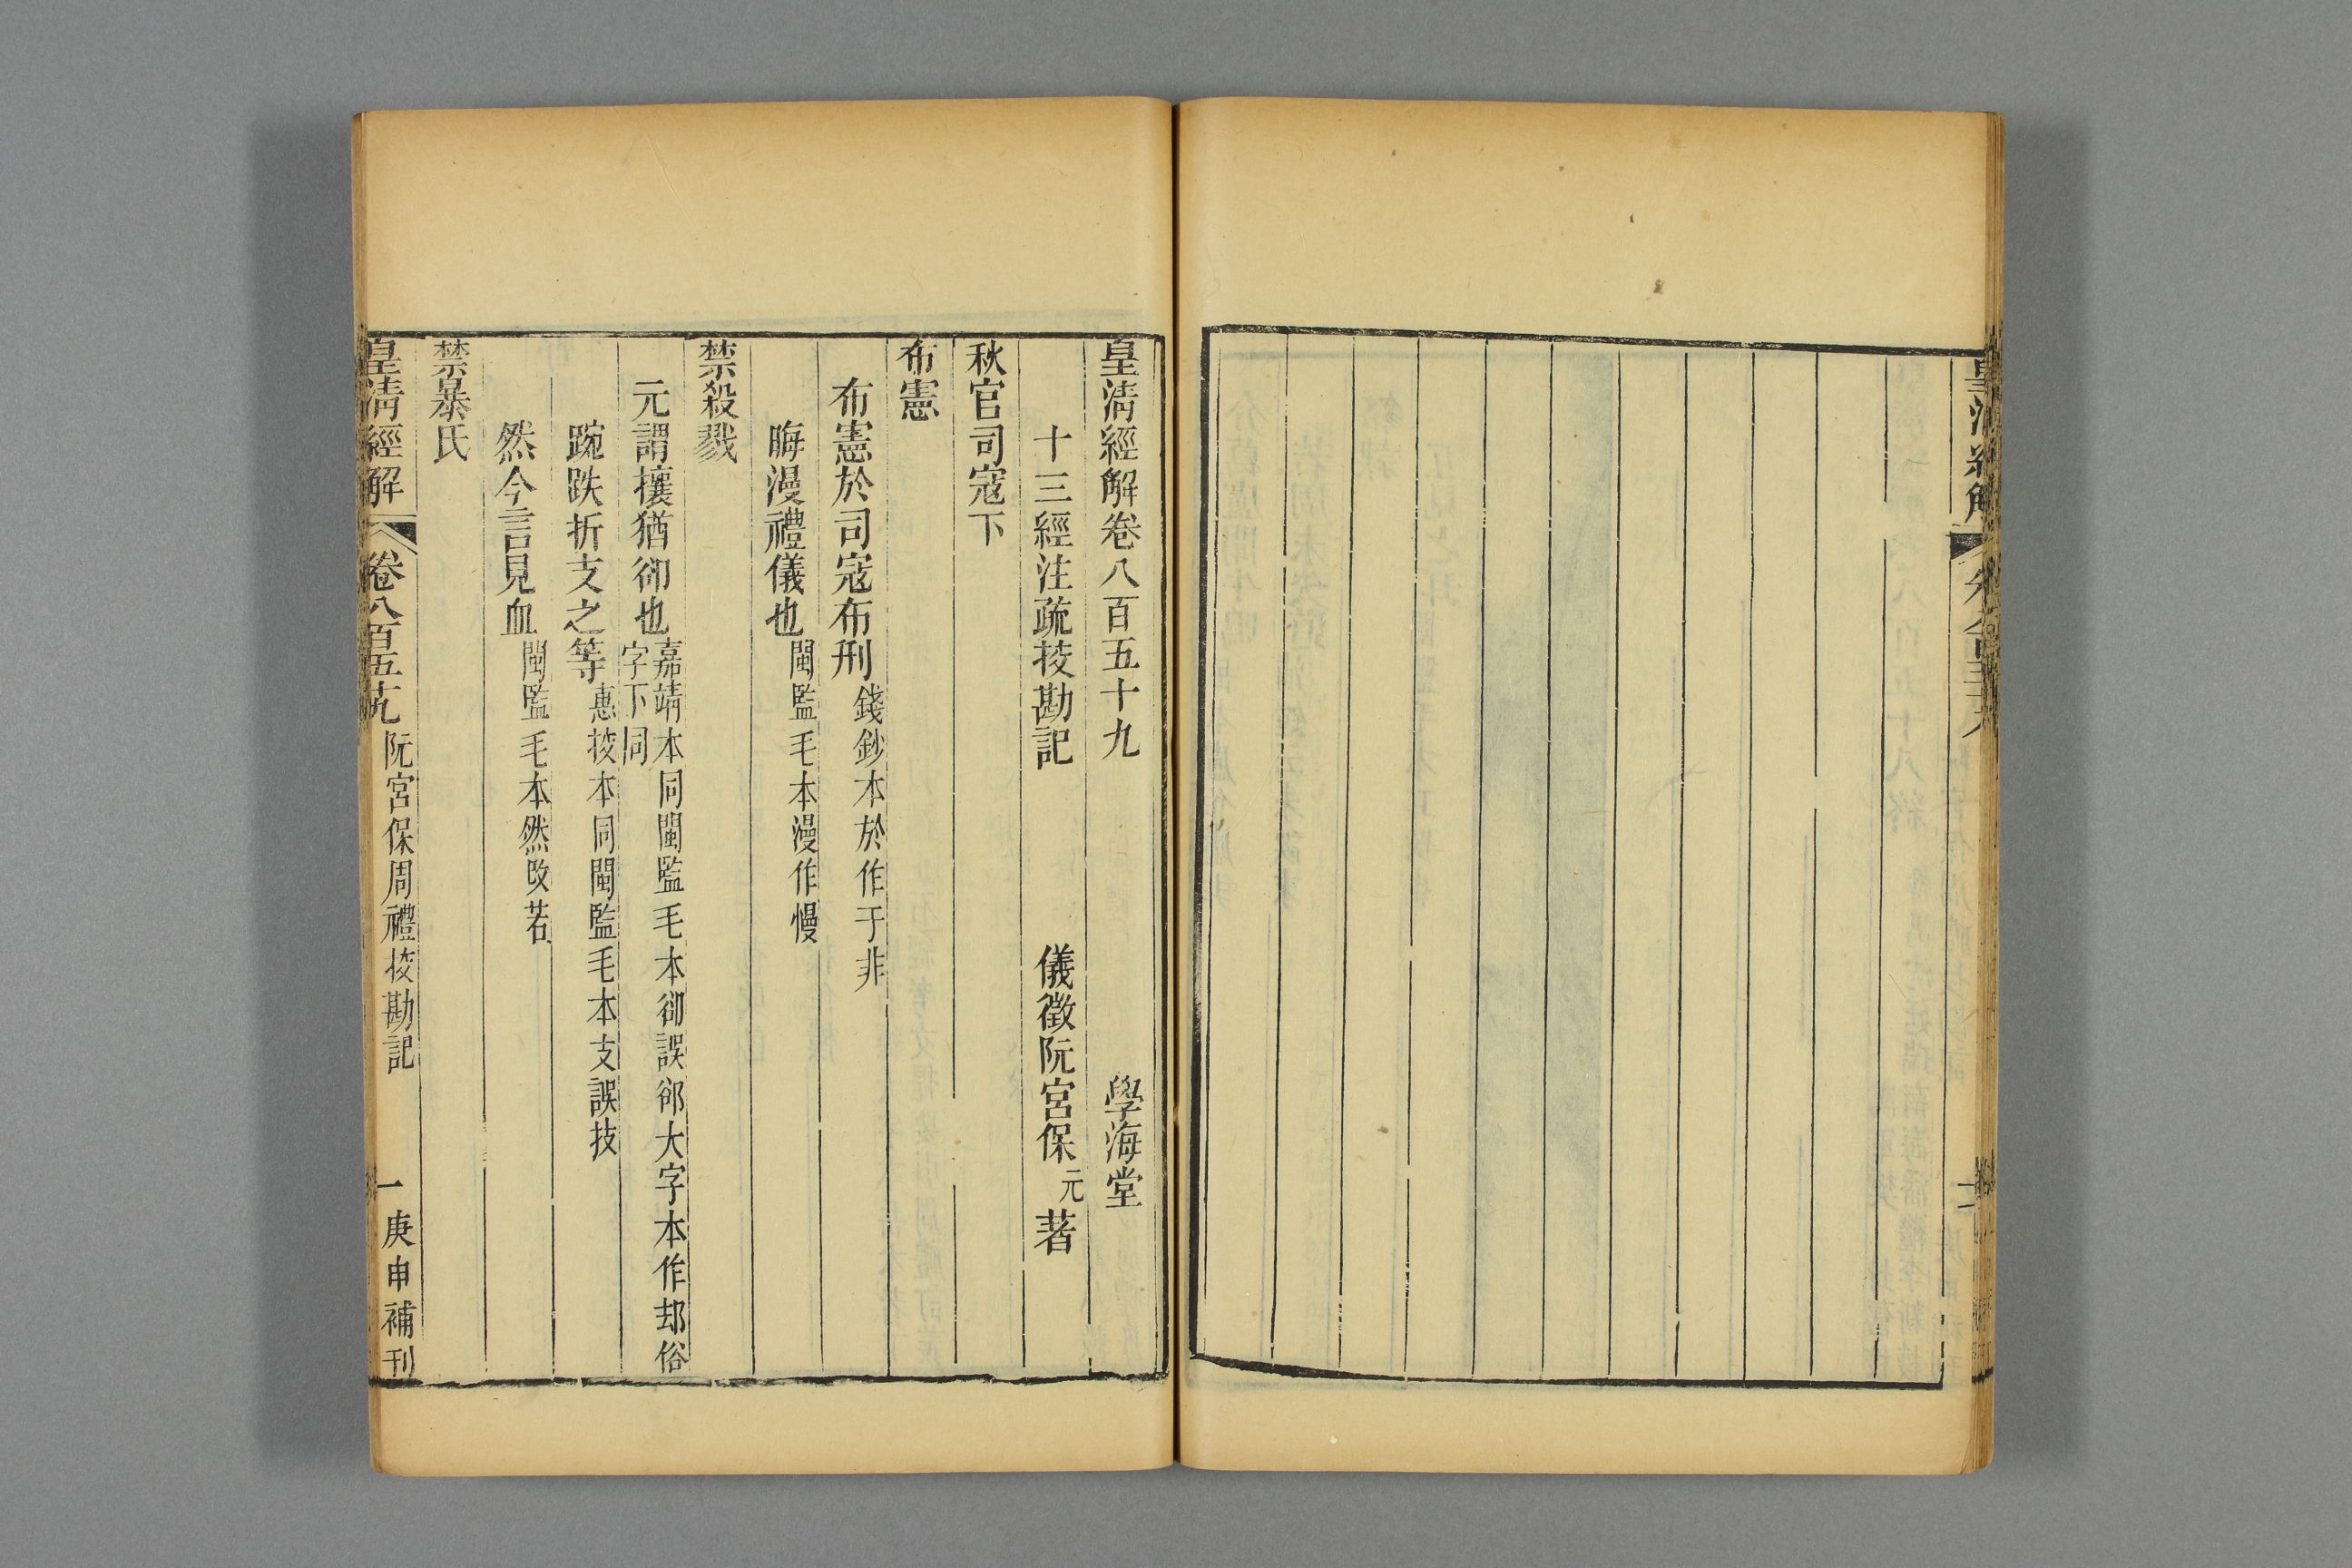 皇清經解
皇清經解卷八百五十九 學海堂
十三經注疏挍勘記 儀徵阮宮保元著
秋官司寇下
布憲
布憲於司寇布刑錢鈔本於作于非
晦漫禮儀也閩監毛本漫作慢
禁殺戮
元謂攘猶卻也嘉靖本同閩監毛本卻誤郤大字本作却俗
字下同
踠跌折支之等惠挍本同閩監毛本支誤技
然今言見血閩監毛本然改若
禁暴氏
皇清經解 卷八百五十九 阮宮保周禮挍勘記 一 庚申補刊